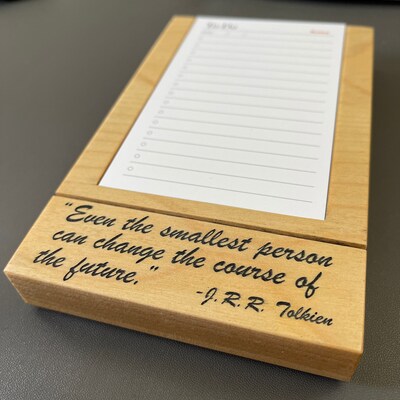 To Do
"Even the smallest person
can change the course of
the future."
-J.R.R. Tolkien